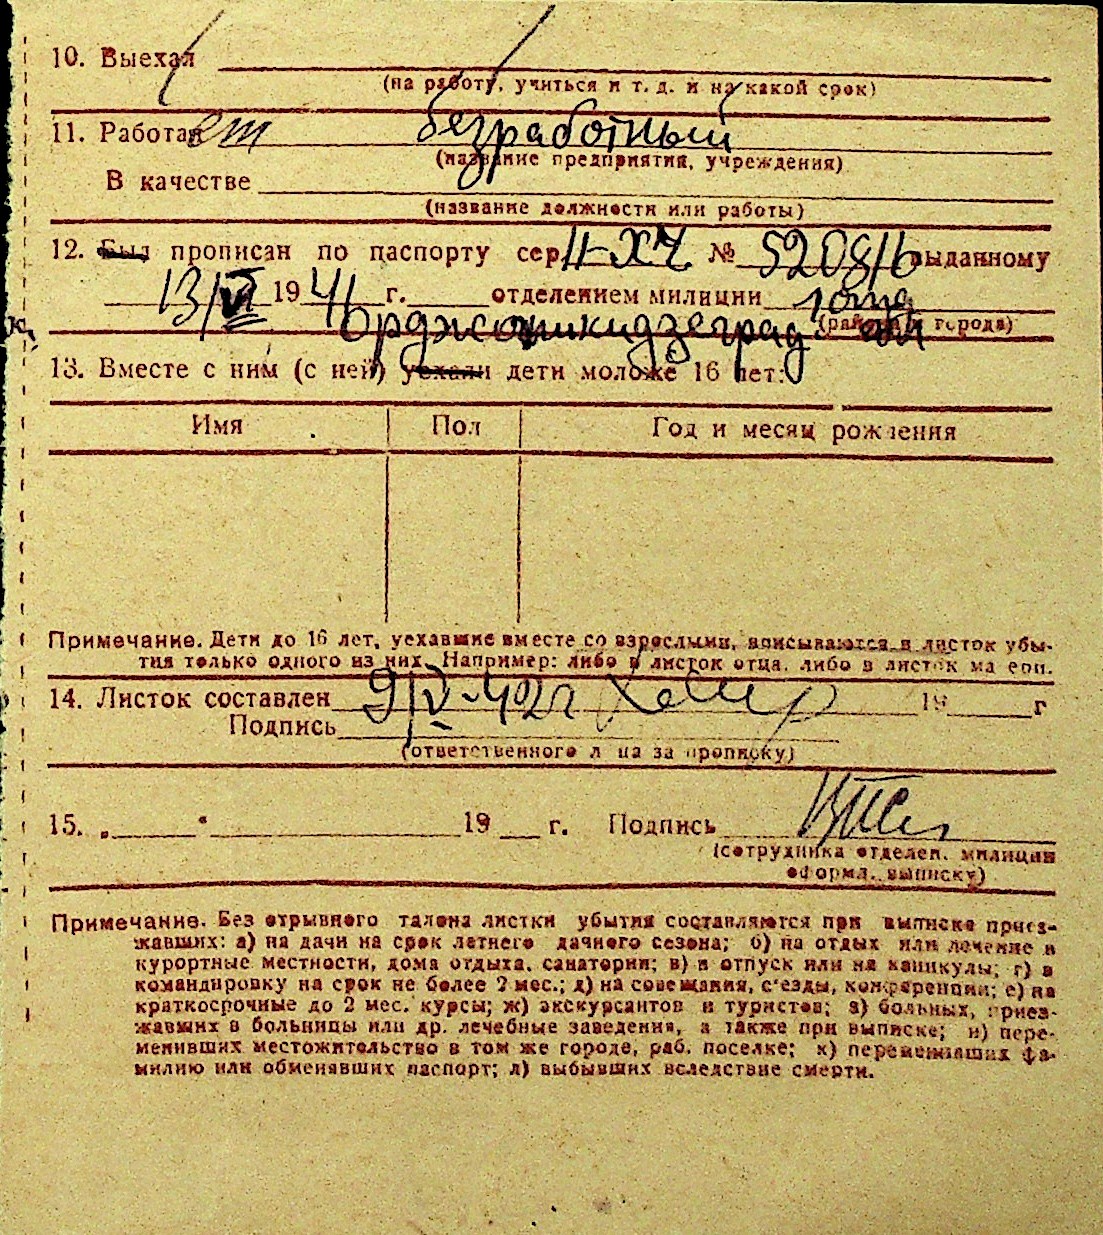 10. Выехал
(на работу, учиться и т. д. и на какой срок)
11. Работает безработный
(название предприятия, учреждения)
В качестве
(название должности или работы)
12. Был прописан по паспорту сер. II-ХЧ № 520816 выданному
13/VI 1941 г. отделением милиции
Орджоникидзеград
(района и города)
13. Вместе с ним (с ней) уехали дети моложе 16 лет:
Имя Пол Год и месяц рождения
Примечание. Дети до 16 лет, уехавшие вместе со взрослыми, вписываются в листок убы-
тия только одного из них. Например: либо в листок отца, либо в листок матери.
14. Листок составлен 9/IV-42г 19 г
Подпись
(ответственного лица за прописку)
15. „ “ 19 г. Подпись
(сотрудника отделен. милиции
оформл. выписку)
Примечание. Без отрывного талона листки убытия составляются при выписке приез-
жавших: а) на дачи на срок летнего дачного сезона; б) на отдых или лечение в
курортные местности, дома отдыха, санатории; в) в отпуск или на каникулы; г) в
командировку на срок не более 2 мес.; д) на совещания, с'езды, конференции; е) на
краткосрочные до 2 мес. курсы; ж) экскурсантов и туристов; з) больных, приез-
жавших в больницы или др. лечебные заведения, а также при выписке; и) пере-
менивших местожительство в том же городе, раб. поселке; к) переменивших фа-
милию или обменявших паспорт; л) выбывших вследствие смерти.